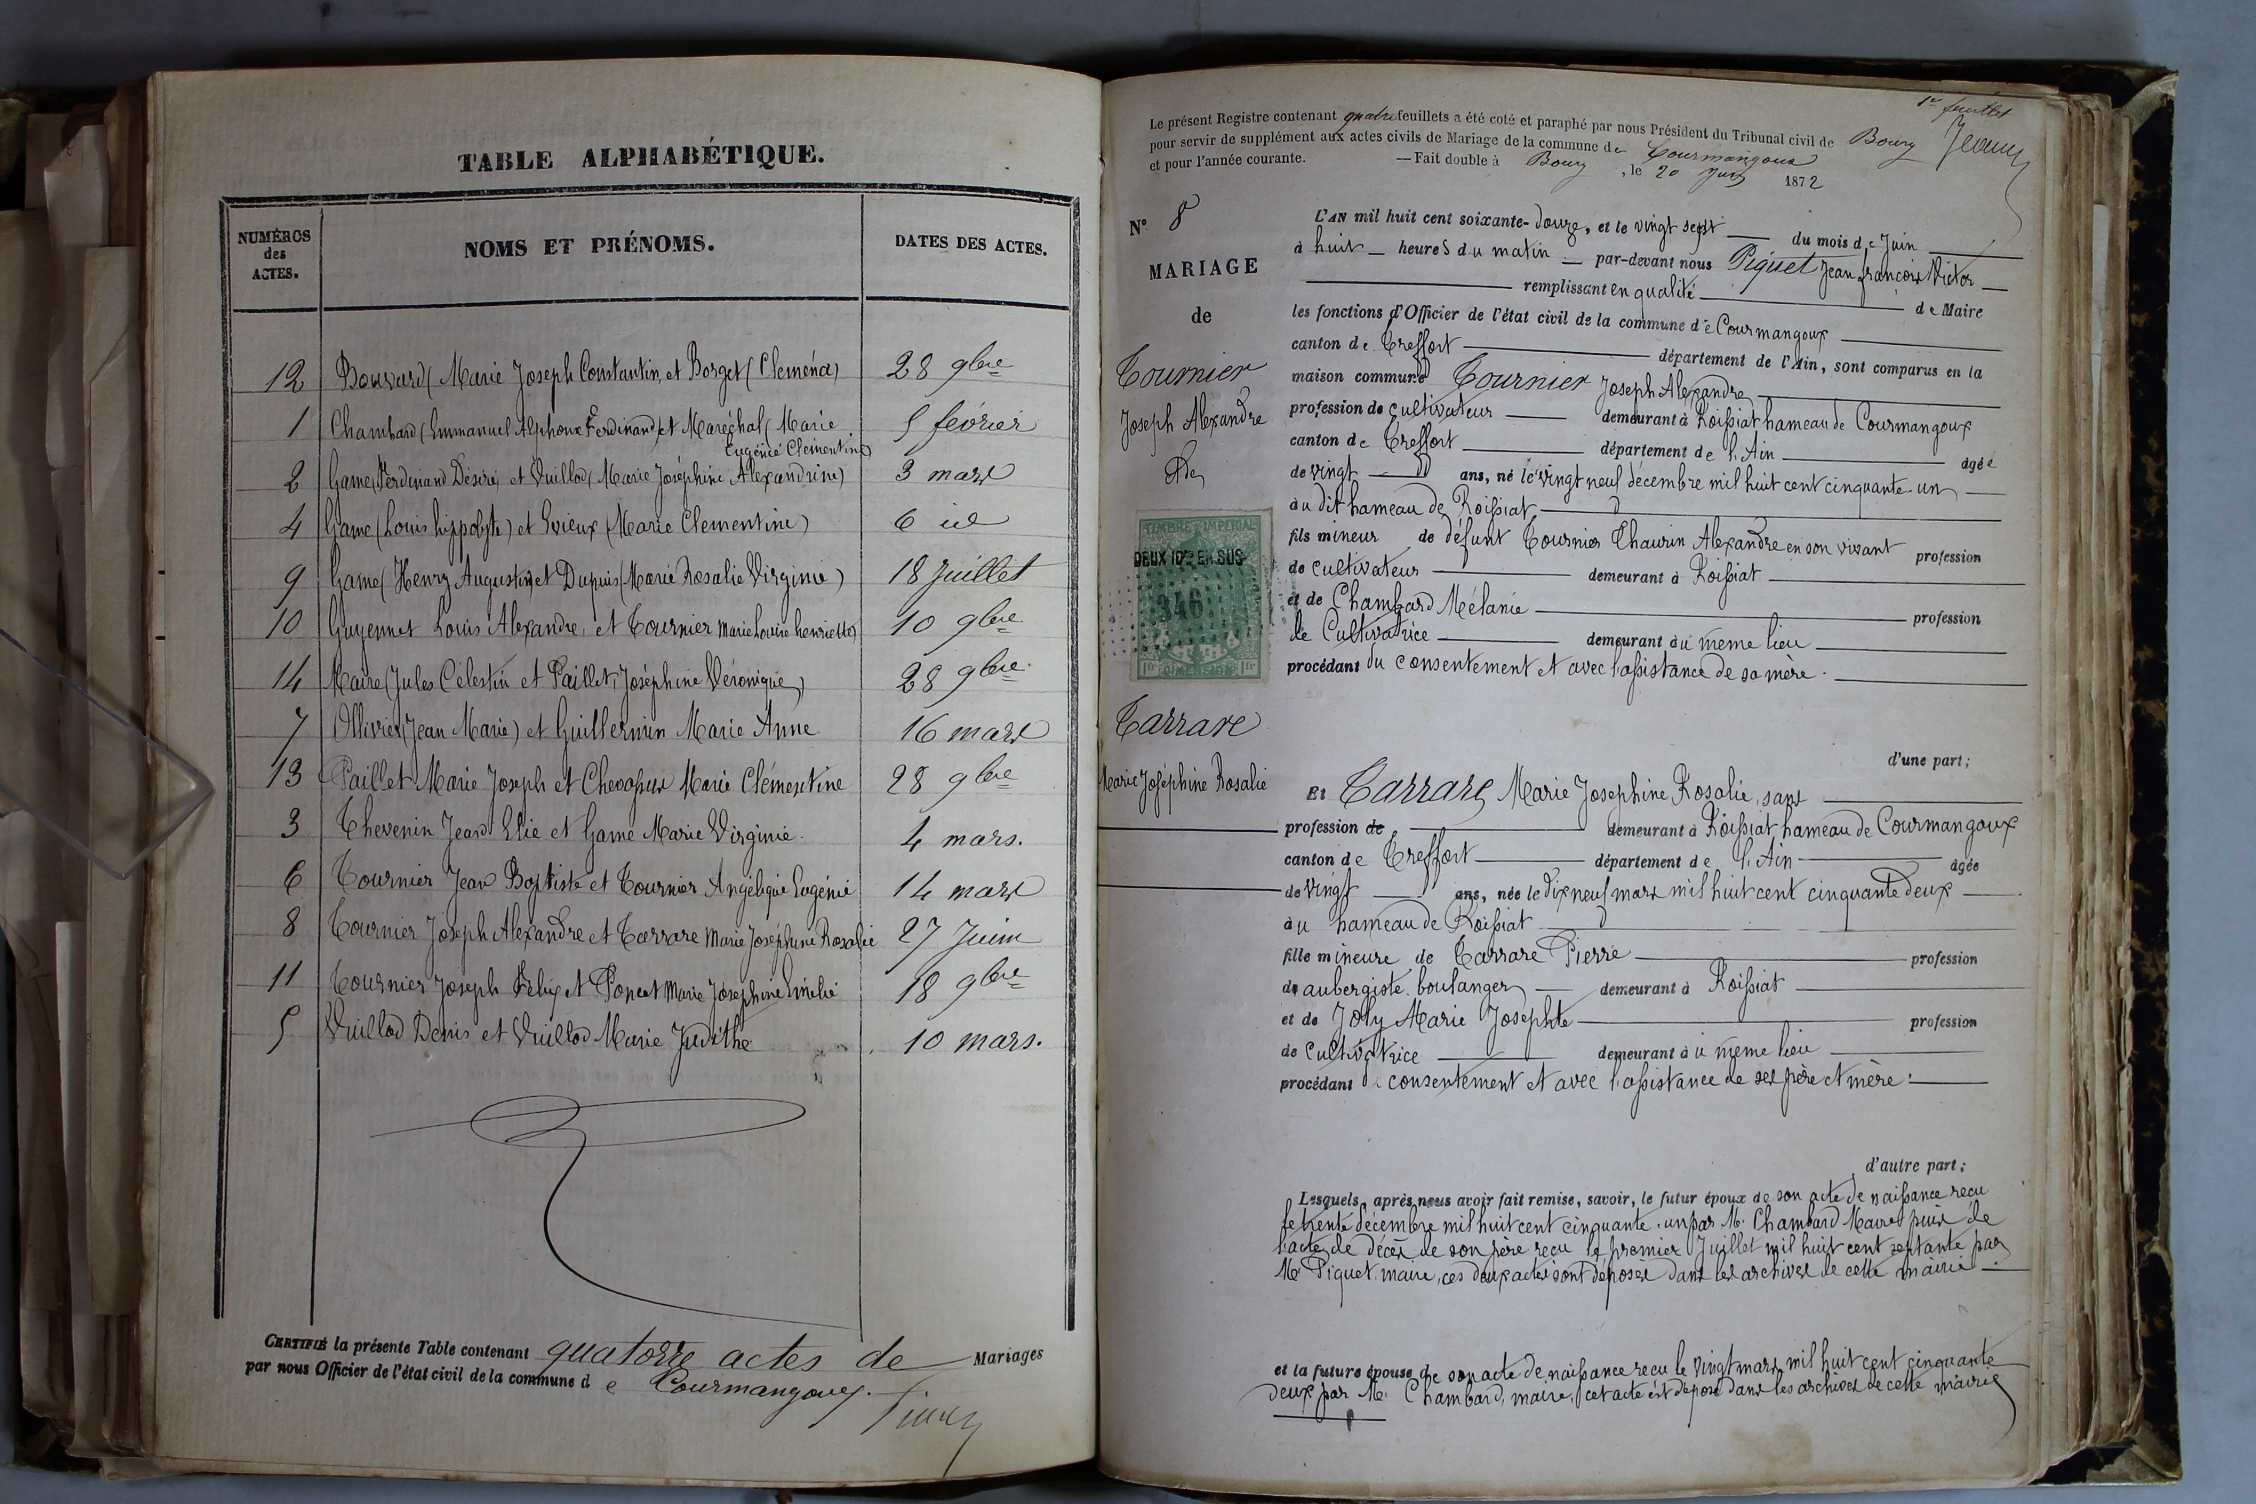 TABLE ALPHABÉTIQUE.
NUMÉROS des ACTES.
NOMS ET PRÉNOMS.
DATES DES ACTES.
12 Bouvard (Marie Joseph Constantin, et Borget (Cleména) 28 9bre
1 Chambard (Emmanuel Alphonse Ferdinand) et Maréchal (Marie 5 février
Eugénie Clémentine)
2 Game (Ferdinand Désiré, et Vuillod (Marie Joséphine Alexandrine) 3 mars
4 Game (Louis hippolyte) et Evieux (Marie Clementine) 6 id
9 Game (Henry Augustin) et Dupuis (Marie Rosalie Virginie) 18 Juillet
10 Guyennet Louis Alexandre, et Tournier Marie Louise henriette 10 9bre
14 Maire (Jules Célestin et Paillet, Joséphine Véronique) 28 9bre
7 Ollivier (Jean Marie) et Guillermin Marie Anne 16 mars
13 Paillet Marie Joseph et Chevassus Marie Clémentine 28 9bre
3 Thevenin Jean Elie et Game Marie Virginie. 4 mars.
6 Tournier Jean Baptiste et Tournier Angélique Eugénie 14 mars
8 Tournier Joseph Alexandre et Carrare Marie Joséphine Rosalie 27 Juin
11 Tournier Joseph Félix et Poncet Marie Joséphine Emélie 18 9bre
5 Vuillod Denis et Vuillod Marie Judithe 10 mars.
CERTIFIÉ la présente Table contenant quatorze actes de Mariages
par nous Officier de l'état civil de la commune de Courmangoux.
1er feuillet
Le présent Registre contenant quatre feuillets a été coté et paraphé par nous Président du Tribunal civil de Bourg
pour servir de supplément aux actes civils de Mariage de la commune de Courmangoux
et pour l'année courante. — Fait double à Bourg, le 20 Juin 1872
N° 8
MARIAGE
de
Tournier
Joseph Alexandre
TIMBRE IMPÉRIAL
DEUX 10es EN SUS
346
1fr DIMENSION 1fr
Carrare
Marie Joséphine Rosalie
L'AN mil huit cent soixante-douze, et le vingt sept du mois de Juin
à huit heures du matin par-devant nous Piquet Jean françois Victor
remplissant en qualité de Maire
les fonctions d'Officier de l'état civil de la commune de Courmangoux
canton de Treffort département de l'Ain, sont comparus en la
maison commune Tournier Joseph Alexandre
profession de cultivateur demeurant à Roissiat hameau de Courmangoux
canton de Treffort département de l'Ain âgé
de vingt ans, né le vingt neuf décembre mil huit cent cinquante-un
au dit hameau de Roissiat
fils mineur de défunt Tournier Thaurin Alexandre en son vivant profession
de cultivateur demeurant à Roissiat
et de Chambard Mélanie profession
de Cultivatrice demeurant au meme lieu
procédant du consentement et avec l'assistance de sa mère.
d'une part;
Et Carrare Marie Josephine Rosalie, sans
profession de demeurant à Roissiat hameau de Courmangoux
canton de Treffort département de l'Ain âgée
de vingt ans, née le dix neuf mars mil huit cent cinquante deux
au hameau de Roissiat
fille mineure de Carrare Pierre profession
de aubergiste boulanger demeurant à Roissiat
et de Joly Marie Josephte profession
de cultivatrice demeurant au meme lieu
procédant du consentement et avec l'assistance de ses père et mère.
d'autre part;
Lesquels, après nous avoir fait remise, savoir, le futur époux de son acte de naissance recu
le trente décembre mil huit cent cinquante-un par M. Chambard Maire puis de
l'acte de décès de son père recu le premier Juillet mil huit cent septante par
Mr Piquet maire, ces deux actes sont déposés dans les archives de cette mairie
et la future épouse de son acte de naissance recu le vingt mars mil huit cent cinquante
deux par Mr Chambard, maire, cet acte est déposé dans les archives de cette mairie